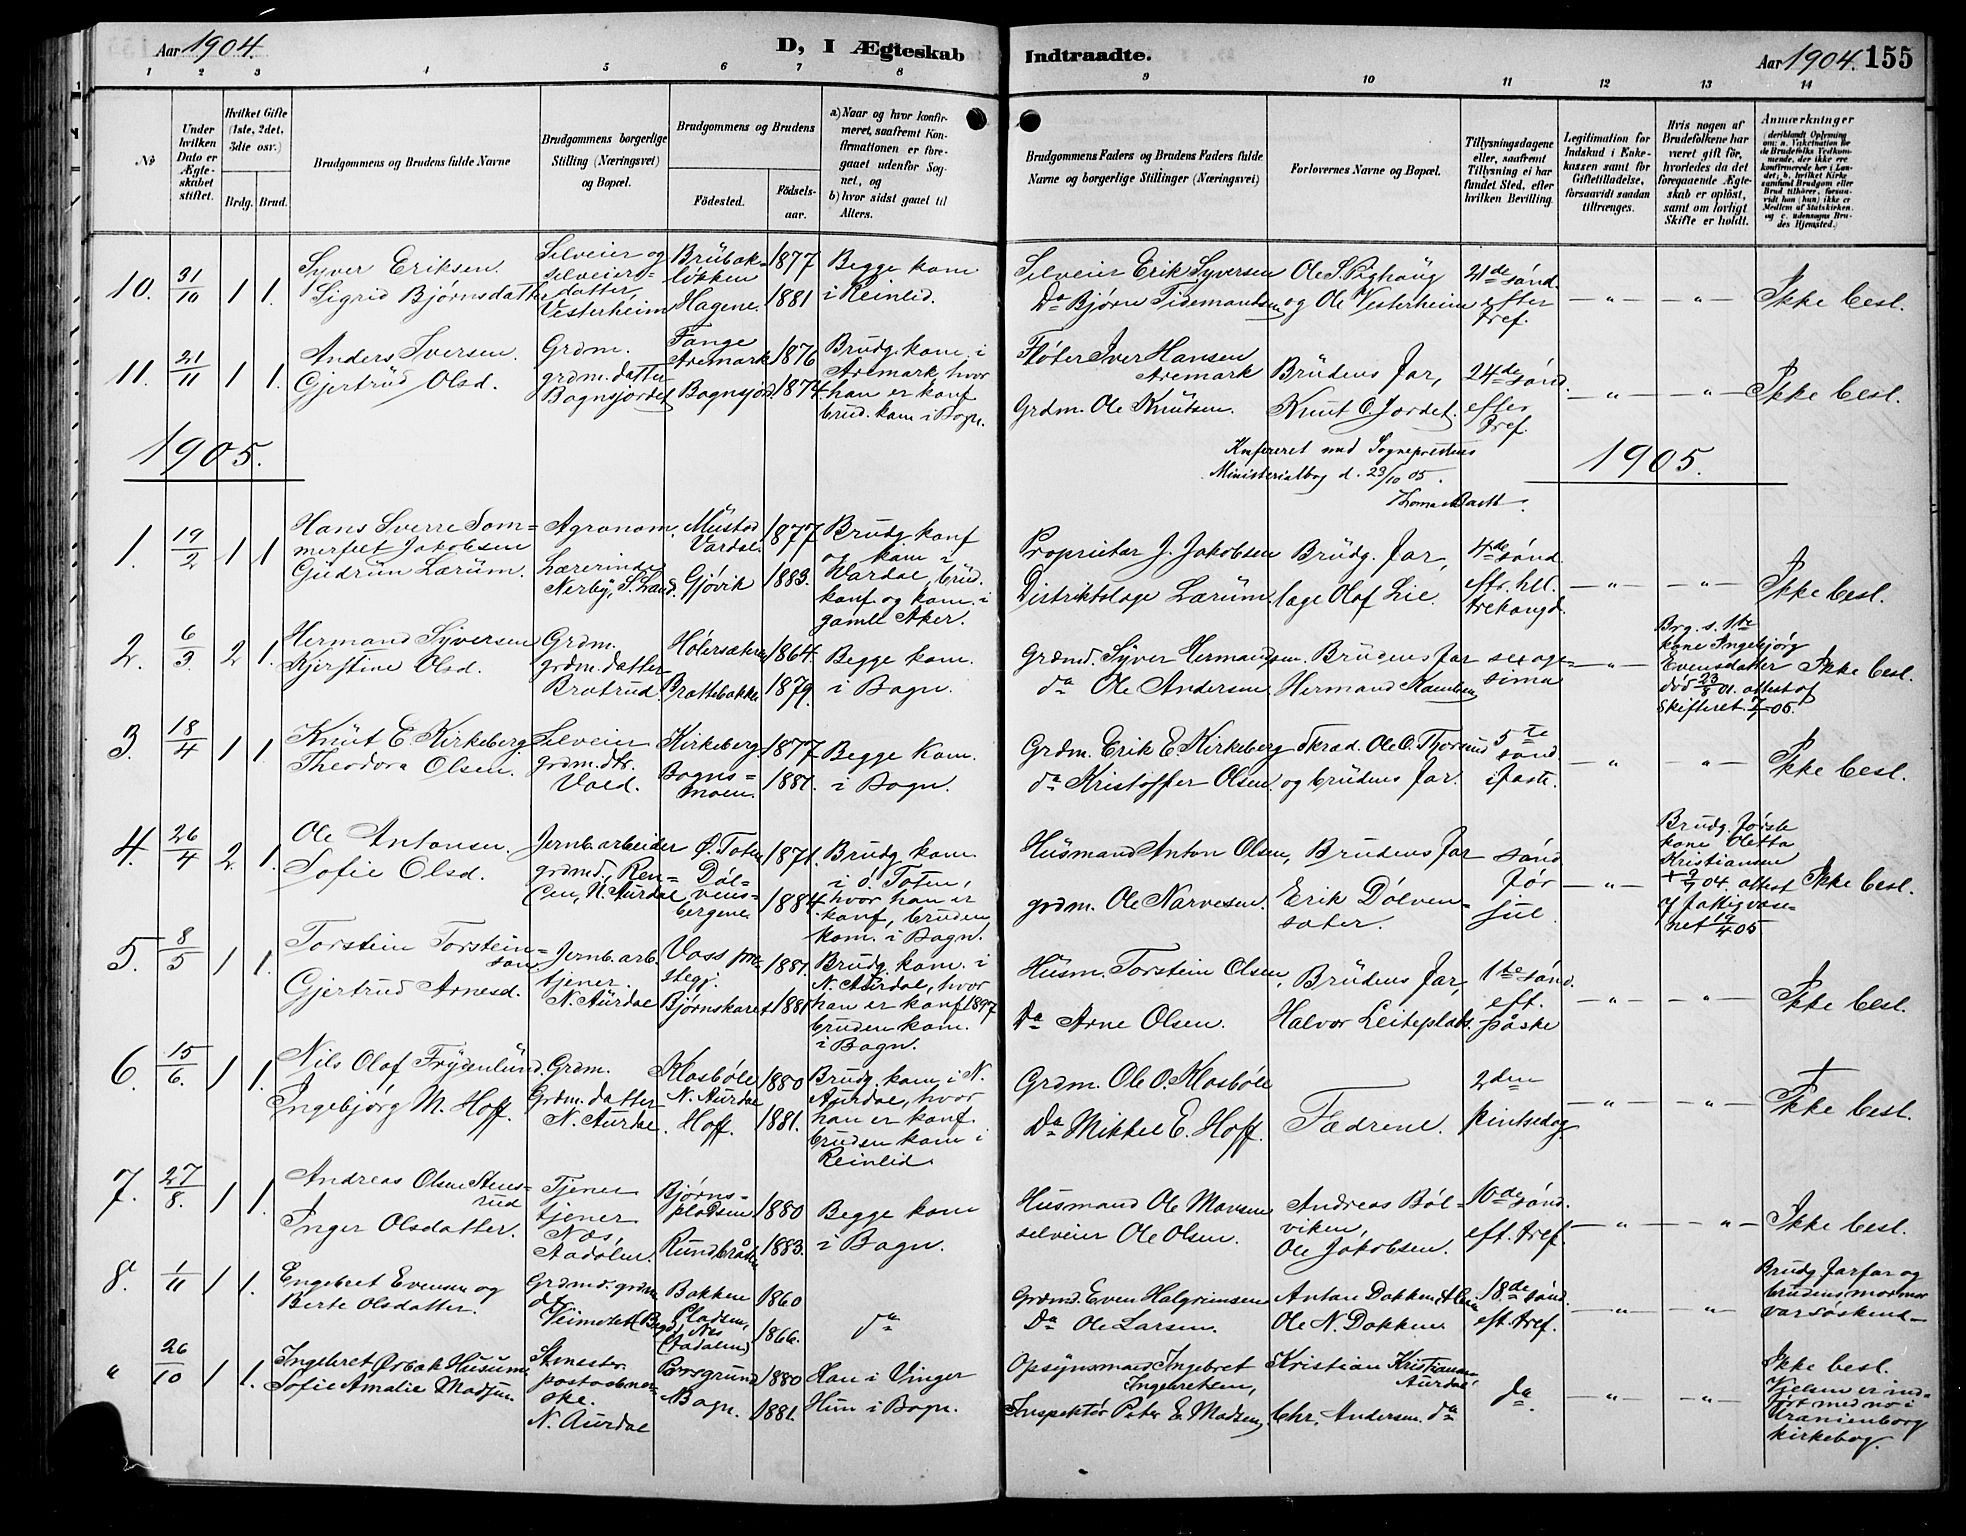 Aar 1904.
D, I Ægteskab Indtraadte.
Aar 1904. 155
1 2 3 4 5 6 7 8 9 10 11 12 13 14
No
Under hvilken Dato er Ægteskabet stiftet.
Hvilket Gifte (1ste, 2det, 3die osv.)
Brdg. Brud.
Brudgommens og Brudens fulde Navne
Brudgommens borgerlige Stilling (Næringsvei) og Bopæl.
Brudgommens og Brudens
Födested.
Födselsaar.
a) Naar og hvor konfirmeret, saafremt Konfirmationen er foregaaet udenfor Sognet, og
b) hvor sidst gaaet til Alters.
Brudgommens Faders og Brudens Faders fulde Navne og borgerlige Stillinger (Næringsvei)
Forlovernes Navne og Bopæl.
Tillysningsdagene eller, saafremt Tillysning ei har fundet Sted, efter hvilken Bevilling.
Legitimation for Indskud i Enkekassen samt for Giftetilladelse, forsaavidt saadan tiltrænges.
Hvis nogen af Brudefolkene har været gift för, hvorledes da det foregaaende Ægteskab er oplöst, samt om lovligt Skifte er holdt.
Anmærkninger
(deriblandt Oplysning om: a. Vakcination for de Brudefolks Vedkommende, der ikke ere konfirmerede her i Landet; b. hvilket Kirkesamfund Brudgom eller Brud tilhörer, forsaavidt han (hun) ikke er Medlem af Statskirken, og c. udensogns Brudes Hjemsted.)
10. 31/10 1 1.
Syver Eriksen.
Sigrid Bjørnsdatter
Selveier og
selveiers-
datter
Vesterheim
Brübak-
løkken
Hagene.
1877
1881
Begge kom
i Reinlid.
Selveier Erik Syversen
Da Bjørn Tidemandsen
Ole S.
og Ole Vesterheim
21de sønd.
efter
tref.
— " — — " —
Ikke besl.
11. 21/11 1 1.
Anders Iversen.
Gjertrüd Olsd.
Grdm.
grdm. datter
Bagnsjordet
Fange
Aremark
Bagnsjord.
1876
1874
Brudg. kom. i
Aremark, hvor
han er konf
brud. kom i Bagn.
Fløter Iver Hansen
Aremark
Grdm. Ole Knütsen.
Brüdens far,
Knut O. Jordet.
24de sønd.
efter
tref.
— " — — " —
Ikke besl.
1905.
Konfereret med Sogneprestens
Ministerialbog d. 23/10 05.
1905.
1. 19/2 1 1
Hans Sverre Som-
merfelt Jakobsen
Güdrün Lærüm.
Agronom.
Lærerinde
Nerby, S. Land.
Müstad
Vardal.
Gjøvik
1877
1883.
Brudg konf
og kom i
Vardal, brud.
konf. og kom. i
gamle Aker.
Proprietær J. Jakobsen
Distriktslæge Lærüm.
Brüdg. far,
læge Olaf Lie.
4de
sønd.
eftr. hel.
trekongd.
— " — — " —
Ikke besl.
2. 6/3. 2 1.
Hermand Syversen
Kjerstine Olsd.
Grdm.
grdm. datter
Bratrud
Hølersæteren
Brattebakke
1864.
1879.
Begge kom.
i Bagn.
Grdmd. Syver Hermandsen.
da Ole Andersen
Brüdens far
Hermand
sexage-
sima
— " —
Brg. s. 1te
kone Ingebjørg
Evensdatter
død 23/8 01. attest af
skifteret. 7/1 05.
Ikke besl.
3. 18/4 1 1.
Knüt E. Kirkeberg
Theodora Olsen.
Selveier
grdm. dtr.
Vold.
Kirkeberg.
Bagns-
moen.
1877
1881.
Begge Kom.
i Bagn.
Grdm. Erik E. Kirkeberg
da Kristoffer Olsen.
Skræd. Ole O.
og brüdens far.
5te
sønd.
i faste.
— " — — " —
Ikke besl.
4. 26/4 2. 1.
Ole Antonsen.
Sofie Olsd.
Jernb. arbeider
grdmd., Ren-
N. Aurdal
Ø. Toten
Døl-
vens-
bergene.
1871.
1884
Brudg kom.
i ø. Toten,
hvor han er
konf, bruden
kom. i Bagn.
Hüsmand Anton Olsen,
grdm. Ole Narvesen.
Brudens far
Erik Dølven-
søter.
sønd
før
jul.
— " —
Brudg. første
kone Oletta
Kristiansen
+ 9/7 04. attest
af fattigvæse-
net 19/4 05
Ikke besl.
5. 8/5 1 1.
Torstein Torstein-
søn
Gjertrud Arnesd.
Jernb. arb.
tjener.
N. Aürdal
Voss pre-
stegj.
Bjørnskaret
1881.
1881
Brudg. kom. i
N. Aürdal, hvor
han er konf 1897
bruden kom.
i Bagn.
Hüsm. Torstein Olsen,
Da Arne Olsen.
Brüdens far,
Halvor Leiteplads.
1te sønd.
eft.
påske
— " — — " —
Ikke besl.
6. 15/6. 1 1.
Nils Olaf Frydenlünd.
Ingebjørg M. Hoff.
Grdm.
Grdm. datter
N. Aurdal.
Klosbøle
N. Aurdal
Hoff.
1880
1881.
Brudg. kom. i N.
Aurdal, hvor
han er konf.
bruden kom i
Reinlid.
Grdm. Ole O. Klosbøle
Da Mikkel E. Hoff.
Fædrene.
2den
pintsedag
— " — — " —
+
Ikke besl.
7. 27/8. 1 1.
Andreas Olsen Stens-
rud
Inger Olsdatter.
Tjener
tjener
Næs,
Aadalen.
Bjørns-
pladsen
Rundbråte
1880
1883.
Begge kom
i Bagn.
Husmand Ole Monsen
selveier Ole Olsen.
Andreas Bøl-
viken,
Ole Jakobsen.
10de sønd.
eft. tref.
— " — — " —
Ikke besl.
8. 1/11 1 1.
Engebret Evensen og
Berte Olsdatter.
Grdmd. grdm.
dtr.
Veimotet (Bagn)
Bakken
Pladsen,
Næs
(Aadalen)
1860
1866.
da
Grdmd. Even Halgrimsen
Da Ole Larsen.
Anton Dokken,
Ole N. Dokken
18de sønd.
eft. tref.
— " — — " —
Brudg farfar og
brudens mormor
var søskend—
" 26/10 1 1.
Ingebret Ørbæk Husum
Sofie Amalie Madsen.
Stenester
postaabner-
ske.
N. Aürdal
Porsgrund
Bagn.
1880
1881.
Han i Vinger
Hun i Bagn.
Opsynsmand Ingebret
Ingebretsen,
Inspektør Peter E. Madsen,
Kristian Kristiansen
Aurdal,
Chr. Andersen. da
da.
— " — — " —
Ikke besl.
Vielsen er ind-
ført med no i
Uranienborg
kirkebog.